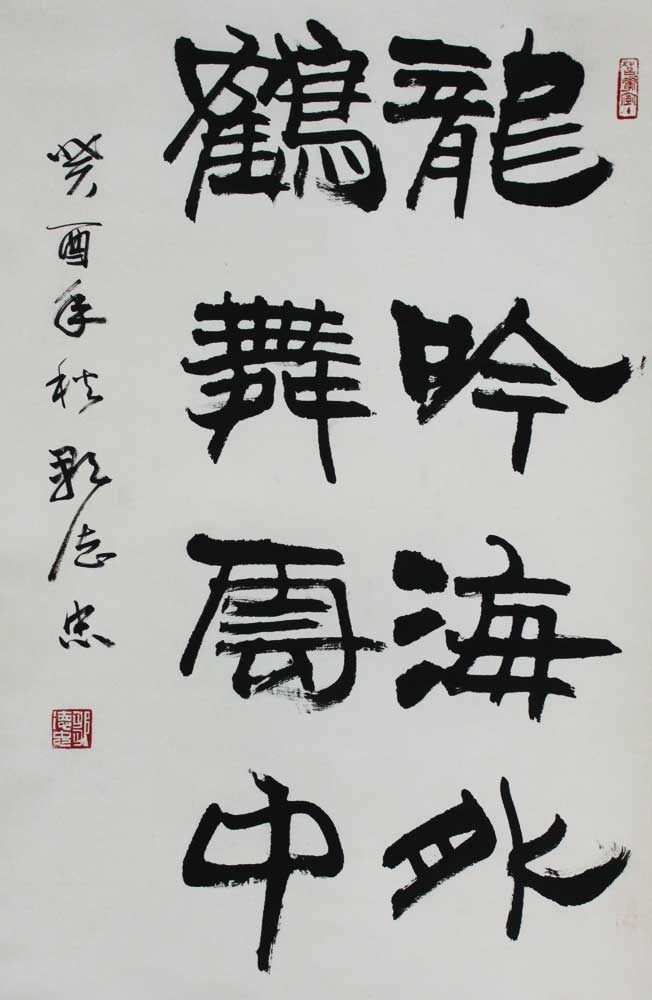 龍吟海外
鶴舞雲中
癸酉年秋鄒德忠